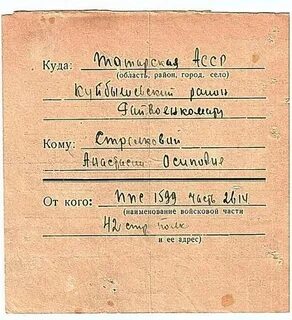 Куда: Татарская АССР
(область, район, город, село)
Куйбышевский район
Райвоенкомату
Кому: Стрелковой
Анастасии Осиповне
От кого: ппс 1599 часть 2614
(наименование войсковой части
42 стр полк
и ее адрес)